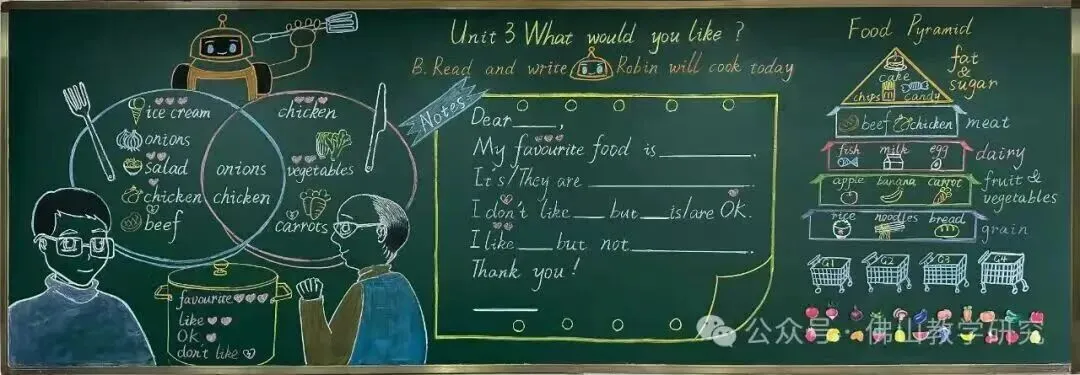 Unit 3 What would you like?
B. Read and write Robin will cook today
ice cream
onions
salad
chicken
beef
onions
chicken
chicken
vegetables
carrots
favourite
like
OK
don't like
Notes
Dear____,
My favourite food is __________.
It's/They are ______________
I don't like ___ but ___ is/are OK.
I like ___ but not __________.
Thank you!
______
Food Pyramid
fat
&
sugar
cake
chips candy
beef chicken meat
fish milk egg dairy
apple banana carrot fruit &
vegetables
rice noodles bread grain
G1 G2 G3 G4
公众号·佛山教学研究